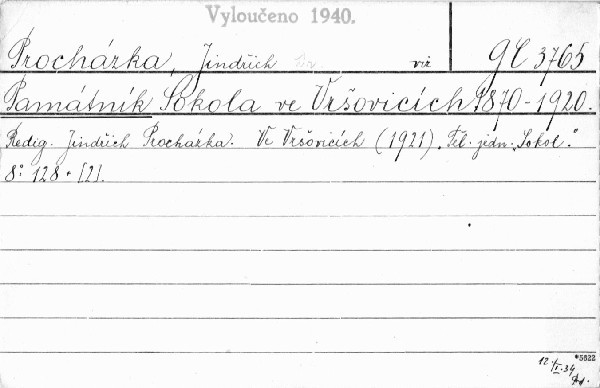 Vyloučeno 1940.
Procházka, Jindřich viz 9C 3765
Památník Sokola ve Vršovicích 1870-1920.
Redig. Jindřich Procházka. Ve Vršovicích (1921). Těl. jedn. „Sokol."
8° 128 + [2].
*5622
12./I.34